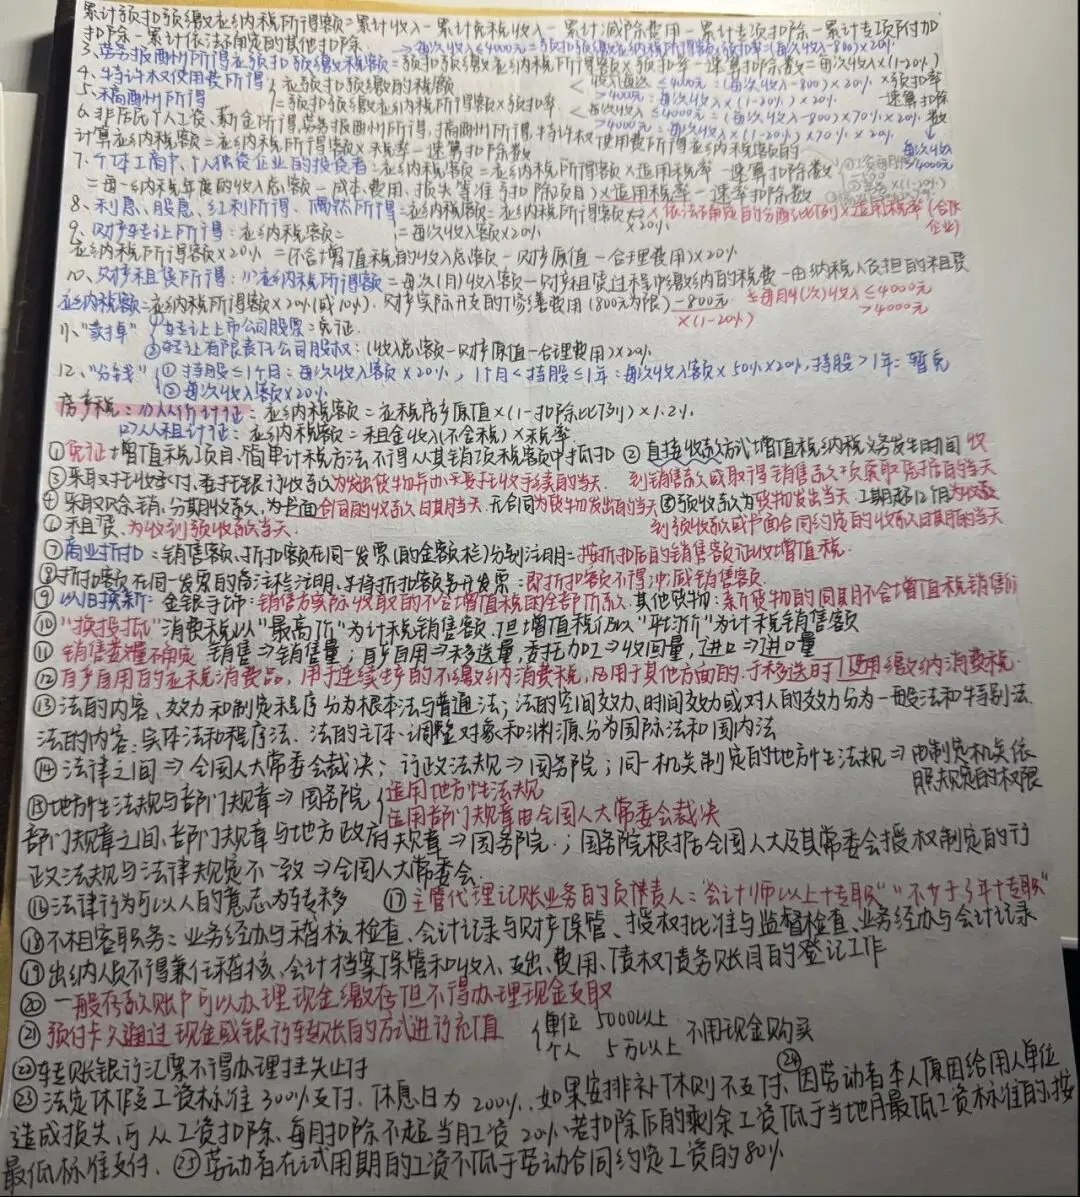 累计预扣预缴应纳税所得额=累计收入-累计免税收入-累计减除费用-累计专项扣除-累计专项附加
扣除-累计依法确定的其他扣除 →每次收入≤4000元=预扣预缴应纳税所得额×预扣率=(每次收入-800)×20%
3、劳务报酬所得应预扣预缴税额=预扣预缴应纳税所得额×预扣率-速算扣除数=每次收入×(1-20%)
4、特许权使用费所得 应预扣预缴的税额 <每次收入≤4000元:(每次收入-800)×20% ×预扣率
5、稿酬所得 =预扣预缴应纳税所得额×预扣率 >4000元:每次收入×(1-20%)×20% -速算扣除数
<每次收入≤4000元=(每次收入-800)×70%×20%
6、非居民个人工资、薪金所得,劳务报酬所得,稿酬所得,特许权使用费所得应纳税额的 >4000元=每次收入×(1-20%)×70%×20%
计算应纳税额=应纳税所得额×税率-速算扣除数
7、个体工商户、个人独资企业的投资者:应纳税额=应纳税所得额×适用税率-速算扣除数
=(每一纳税年度的收入总额-成本、费用、损失等准予扣除项目)×适用税率-速率扣除数
8、利息、股息、红利所得、偶然所得=应纳税额=应纳税所得额×20% ×依法确定的分配比例×适用税率(合伙企业)
9、财产转让所得:应纳税额= =每次收入额×20%
应纳税所得额×20%=(不含增值税的收入总额-财产原值-合理费用)×20%
10、财产租赁所得:(1)应纳税所得额=每次(月)收入额-财产租赁过程中缴纳的税费-由纳税人负担的租赁
应纳税额=应纳税所得额×20%(或10%)、财产实际开支的修缮费用(800元为限)-800元 每月(次)收入≤4000元
×(1-20%) >4000元
11、"卖掉" ①转让上市公司股票=免征
②转让有限责任公司股权:(收入总额-财产原值-合理费用)×20%
12、"分钱"(①持股≤1个月:每次收入额×20%,1个月<持股≤1年:每次收入额×50%×20%,持股>1年=暂免
②每次收入额×20%
房产税:(1)从价计征:应纳税额=应税房产原值×(1-扣除比例)×1.2%
(2)从租计征:应纳税额=租金收入(不含税)×税率
①免征增值税项目、简单计税方法,不得从其销项税额中抵扣 ②直接收款方式增值税纳税义务发生时间 收
到销售款或取得销售款项索取凭据的当天
③采取托收承付、委托银行收款为发出货物并办妥托收手续的当天
④采取赊销、分期收款,为书面合同的收款日期当天.无合同为货物发出的当天⑤预收款为货物发出当天.工期超12个月为收款
到预收款或书面合同约定的收款日期的当天
⑥租赁、为收到预收款当天
⑦商业折扣:销售额、折扣额在同一发票(的金额栏)分别注明=按折扣后的销售额征收增值税.
⑧折扣额在同一发票的备注栏注明、或将折扣额另开发票=即折扣额不得冲减销售额
⑨以旧换新:金银首饰:销售方实际收取的不含增值税的全部价款.其他货物:新货物的同期不含增值税销售价
⑩"换投抵"消费税以"最高价"为计税销售额,但增值税仍以"平均价"为计税销售额
⑪销售数量不确定 销售⇒销售量;自产自用⇒移送量,委托加工⇒收回量,进口⇒进口量
⑫自产自用的应税消费品,用于连续生产的不缴纳消费税,凡用于其他方面的,于移送时适用缴纳消费税.
⑬法的内容、效力和制定程序分为根本法与普通法;法的空间效力、时间效力或对人的效力分为一般法和特别法.
法的内容:实体法和程序法.法的主体、调整对象和渊源分为国际法和国内法
⑭法律之间⇒全国人大常委会裁决;行政法规⇒国务院;同一机关制定的地方性法规⇒由制定机关依
照规定的权限
⑮地方性法规与部门规章⇒国务院{适用地方性法规
适用部门规章由全国人大常委会裁决
部门规章之间、部门规章与地方政府规章⇒国务院.;国务院根据全国人大及其常委会授权制定的行
政法规与法律规定不一致⇒全国人大常委会
⑯法律行为可以人的意志为转移 ⑰主管代理记账业务的负责人:"会计师以上+专职""不少于3年+专职"
⑱不相容职务:业务经办与稽核检查、会计记录与财产保管、授权批准与监督检查、业务经办与会计记录
⑲出纳人员不得兼任稽核、会计档案保管和收入、支出、费用、债权债务账目的登记工作
⑳一般存款账户可以办理现金缴存但不得办理现金支取
㉑预付卡只通过现金或银行转账的方式进行充值 {单位 5000以上 不用现金购买
个人 5万以上
㉒转账银行汇票不得办理挂失止付
㉓法定休假工资标准300%支付,休息日为200%.如果安排补休则不支付.㉔因劳动者本人原因给用人单位
造成损失,可从工资扣除、每月扣除不超当月工资20%.若扣除后的剩余工资低于当地月最低工资标准的,按
最低标准支付.㉕劳动者在试用期的工资不低于劳动合同约定工资的80%